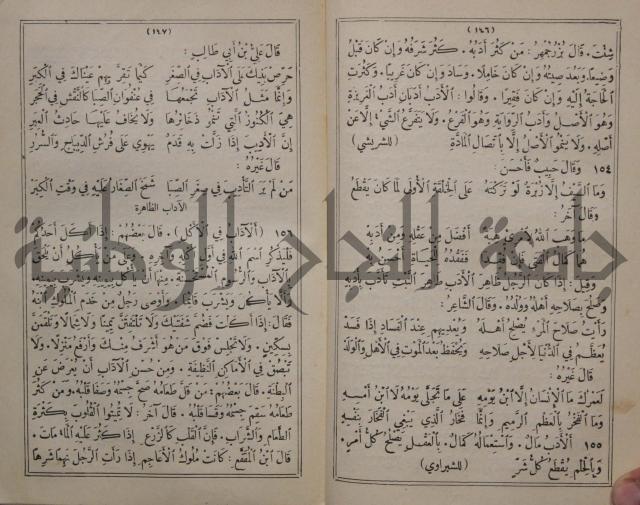 (١٤٦)
شِئْتَ. قَالَ بُزُرْجُمِهْرُ: مَنْ كَثُرَ أَدَبُهُ. كَثُرَ شَرَفُهُ وَإِنْ كَانَ قَبْلُ
وَضِيعًا. وَبَعُدَ صِيتُهُ وَإِنْ كَانَ خَامِلًا. وَسَادَ وَإِنْ كَانَ غَرِيبًا. وَكَثُرَتِ
الْحَاجَةُ إِلَيْهِ وَإِنْ كَانَ فَقِيرًا. وَقَالُوا: الْأَدَبُ أَدَبَانِ أَدَبُ الْغَرِيزَةِ
وَهُوَ الْأَصْلُ وَأَدَبُ الرِّوَايَةِ وَهُوَ الْفَرْعُ. وَلَا يَتَفَرَّعُ الشَّيْءُ إِلَّا عَنْ
أَصْلِهِ. وَلَا يَنْمُو الْأَصْلُ إِلَّا بِاتِّصَالِ الْمَادَّةِ (للشريشي)
١٥٤ وَقَالَ حَبِيبٌ فَأَحْسَنَ:
وَمَا السَّيْفُ إِلَّا زُبْرَةٌ لَوْ تَرَكْتَهُ عَلَى الْخِلْقَةِ الْأُولَى لَمَا كَانَ يَقْطَعُ
وَقَالَ آخَرُ:
مَا وَهَبَ اللهُ لِامْرِئٍ هِبَةً أَفْضَلَ مِنْ عَقْلِهِ وَمِنْ أَدَبِهِ
هُمَا كَمَالُ الْفَتَى فَإِنْ فُقِدَا فَفَقْدُهُ لِلْحَيَاةِ أَحْسَنُ بِهِ
وَقِيلَ: إِذَا كَانَ الرَّجُلُ طَاهِرَ الْأَدَبِ طَاهِرَ الْمَنْبِتِ تَأَدَّبَ بِأَدَبِهِ
وَصَلَحَ بِصَلَاحِهِ أَهْلُهُ وَوَلَدُهُ. وَقَالَ الشَّاعِرُ:
رَأَيْتُ صَلَاحَ الْمَرْءِ يُصْلِحُ أَهْلَهُ وَيُعْدِيهِمِ عِنْدَ الْفَسَادِ إِذَا فَسَدْ
يُعَظَّمُ فِي الدُّنْيَا لِأَجْلِ صَلَاحِهِ وَيُحْفَظُ بَعْدَ الْمَوْتِ فِي الْأَهْلِ وَالْوَلَدْ
قَالَ غَيْرُهُ:
لَعَمْرُكَ مَا الْإِنْسَانُ إِلَّا ابْنُ يَوْمِهِ عَلَى مَا تَجَلَّى يَوْمُهُ لَا ابْنُ أَمْسِهِ
وَمَا الْفَخْرُ بِالْعَظْمِ الرَّمِيمِ وَإِنَّمَا فَخَارُ الَّذِي يَبْغِي الْفَخَارَ بِنَفْسِهِ
١٥٥ الْأَدَبُ مَالٌ. وَاسْتِعْمَالُهُ كَمَالٌ. بِالْعَقْلِ يَصْلُحُ كُلُّ أَمْرٍ.
وَبِالْحِلْمِ يُقْطَعُ كُلُّ شَرٍّ (للشبراوي)
(١٤٧)
قَالَ عَلِيُّ بْنُ أَبِي طَالِبٍ:
حَرِّضْ بَنِيكَ عَلَى الْآدَابِ فِي الصِّغَرِ كَيْمَا تَقَرَّ بِهِمْ عَيْنَاكَ فِي الْكِبَرِ
وَإِنَّمَا مَثَلُ الْآدَابِ تَجْمَعُهَا فِي عُنْفُوَانِ الصِّبَا كَالنَّقْشِ فِي الْحَجَرِ
هِيَ الْكُنُوزُ الَّتِي تَنْمُو ذَخَائِرُهَا وَلَا يُخَافُ عَلَيْهَا حَادِثُ الْغِيَرِ
إِنَّ الْأَدِيبَ إِذَا زَلَّتْ بِهِ قَدَمٌ يَهْوِي عَلَى فُرُشِ الدِّيبَاجِ وَالسُّرُرِ
قَالَ غَيْرُهُ:
مَنْ لَمْ يَرَ التَّأْدِيبَ فِي صِغَرِ الصِّبَا شَمَخَ الصَّغَارُ عَلَيْهِ فِي وَقْتِ الْكِبَرْ
الآداب الظاهرة
١٥٦ (الْآدَابُ فِي الْأَكْلِ). قَالَ بَعْضُهُمْ: إِذَا أَكَلَ أَحَدُكُمْ
فَلْيَذْكُرِ اسْمَ اللهِ فِي أَوَّلِ أَكْلِهِ وَآخِرِهِ.
الْآدَابِ وَالرُّسُومِ
وَأَلَّا يَأْكُلَ وَيَشْرَبَ قَائِمًا. وَأَوْصَى رَجُلٌ مِنْ خَدَمِ الْمُلُوكِ ابْنَهُ
فَقَالَ: إِذَا أَكَلْتَ فَضُمَّ شَفَتَيْكَ وَلَا تَلْتَفِتَنَّ يَمِينًا وَلَا شِمَالًا وَلَا تَلْقَمَنَّ
بِسِكِّينٍ. وَلَا تَجْلِسْ فَوْقَ مَنْ هُوَ أَشْرَفُ مِنْكَ وَأَرْفَعُ مَنْزِلَةً. وَلَا
تَبْصُقْ فِي الْأَمَاكِنِ النَّظِيفَةِ. وَمِنْ حُسْنِ الْآدَابِ أَنْ يُعْرَضَ عَنِ
الْبِطْنَةِ. قَالَ بَعْضُهُمْ: مَنْ قَلَّ طَعَامُهُ صَحَّ جِسْمُهُ وَصَفَا قَلْبُهُ. وَمَنْ كَثُرَ
طَعَامُهُ سَقُمَ جِسْمُهُ وَقَسَا قَلْبُهُ. قَالَ آخَرُ: لَا تُمِيتُوا الْقُلُوبَ بِكَثْرَةِ
الطَّعَامِ وَالشَّرَابِ. فَإِنَّ الْقَلْبَ كَالزَّرْعِ إِذَا كَثُرَ عَلَيْهِ الْمَاءُ مَاتَ.
قَالَ ابْنُ الْمُقَفَّعِ: كَانَتْ مُلُوكُ الْأَعَاجِمِ إِذَا رَأَتِ الرَّجُلَ نَهِمًا شَرِهًا
جامعة النجاح الوطنية